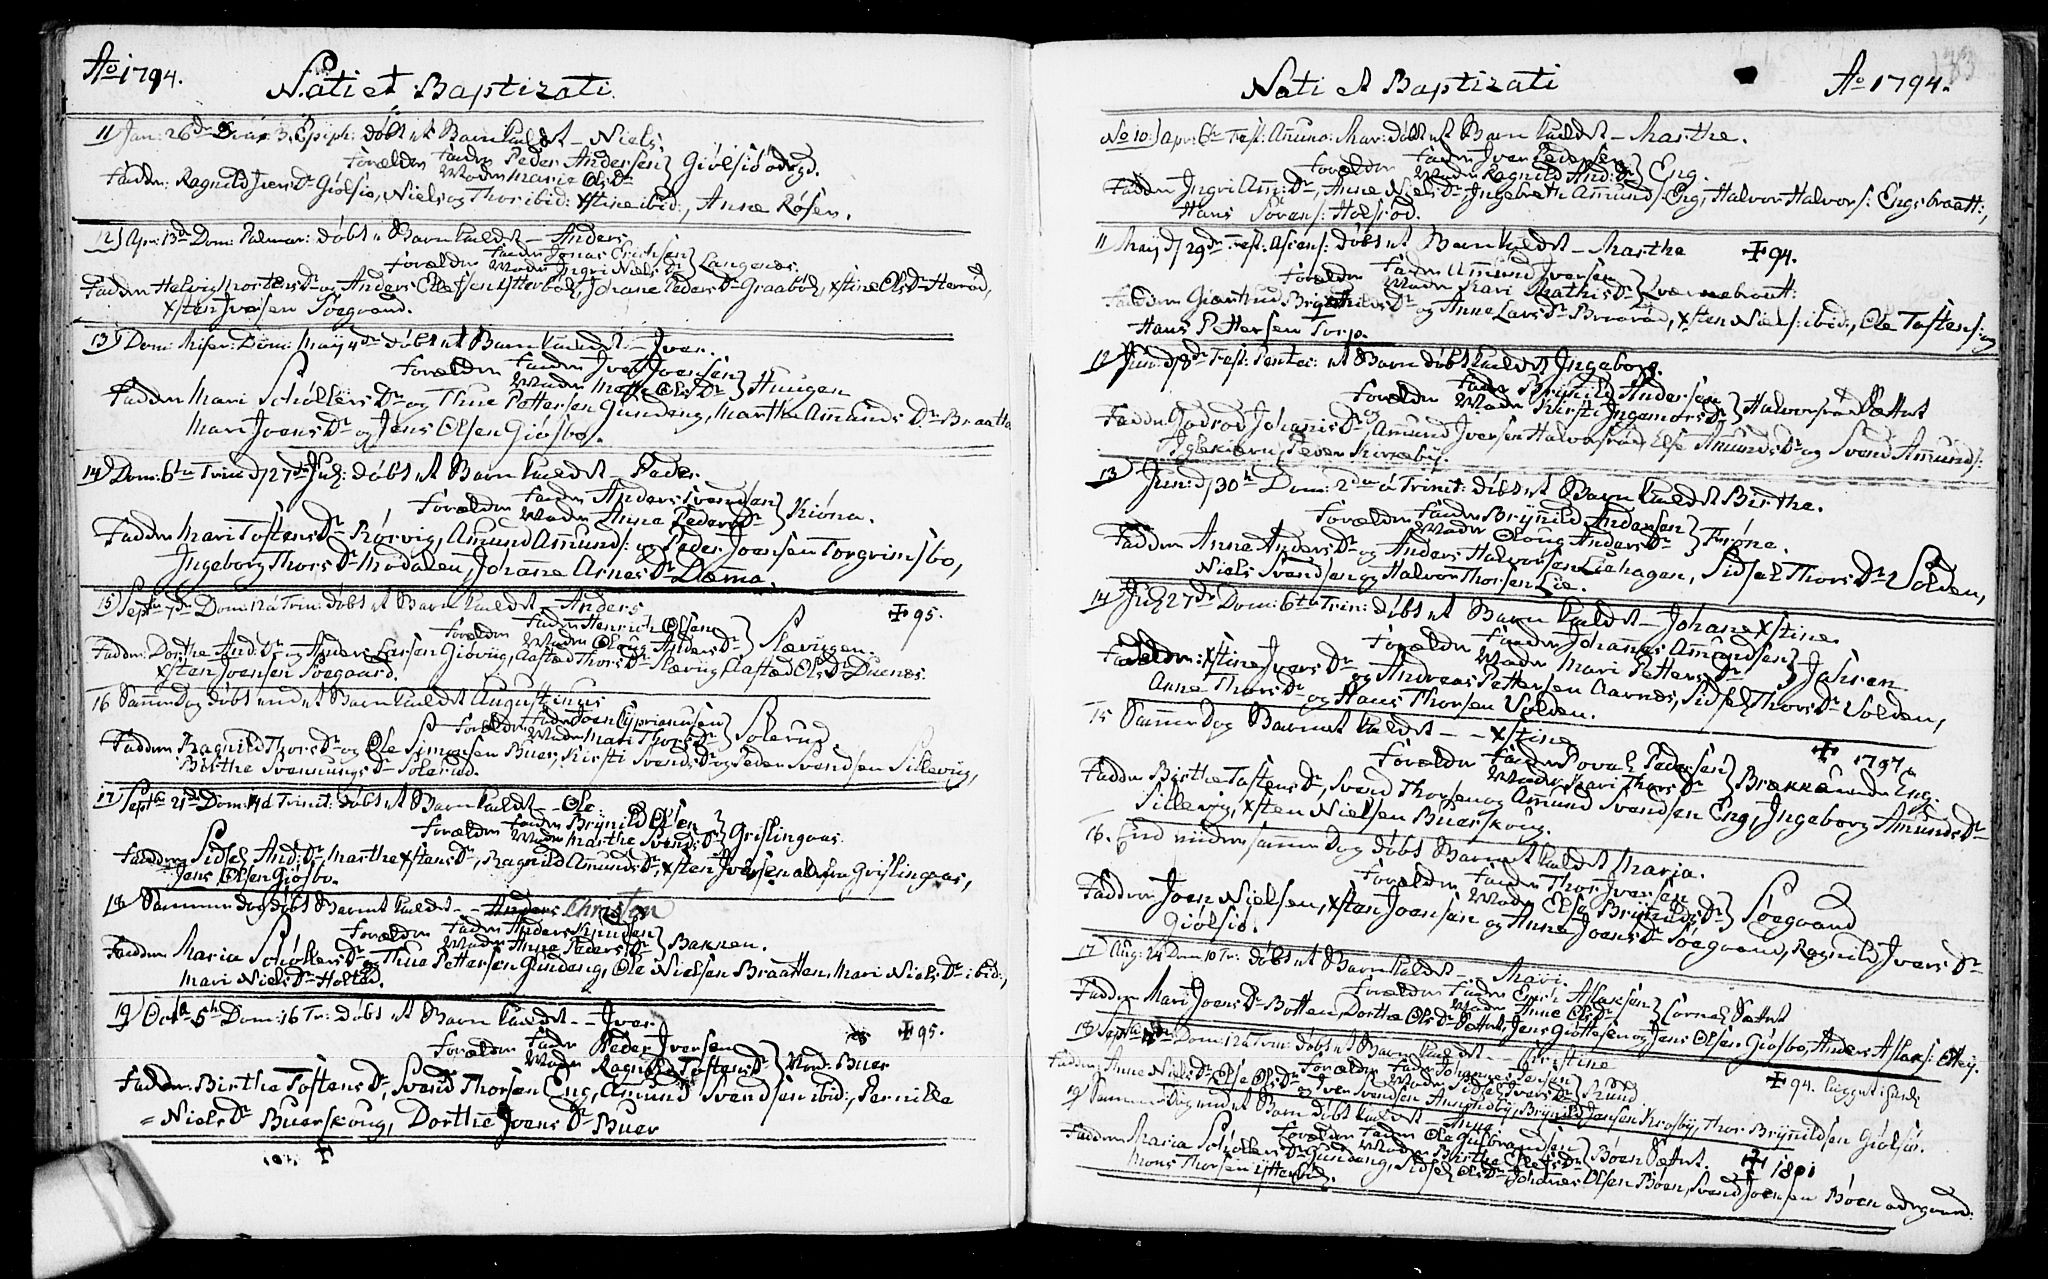 Ao 1794.
Nati et Baptizati.
11 Jan: 26de Dom: 3. Epiph: döbt et Barn kaldet – Niels.
Forældre Fader Peder Andersen Moder Marie Ols Dr } Giölsiö ödegd.
Fadder: Ragnild Ivers Dr Giölsiö, Niels og Thor ibid: Xstine ibid:, Anne Röser.
12) Apr: 13de Dom: Palmar: döbt et Barn kaldet – Anders
Forældre Fader Jonas Erichsen Moder Ingri Niels Dr } Langenæs.
Faddere Helvig Mortens Dr og Anders Olefsen Ytterböl, Johane Peders Dr Graaböl, Xstine Ols Dr Herröd,
Xsten Iversen Söegaard.
13) Dom: Miser: Dom: Maij 4de döbt et Barn kaldet – Iver.
Forældre Fader Iver Joensen Moder Mette Ols Dr } Haugen
Faddere Mari Schöllers Dr og Thue Pettersen Gundeng, Marthe Amunds Dr Braathe
Mari Joens Dr og Jens Olsen Giösbo.
14) Dom: 6ta Trin: d 27de Julj: döbt et Barn kaldet – Peder.
Forældre Fader Anders Svendsen Moder Anne Peders Dr } Kiöna.
Faddere Mari Tostens Dr Rörvig, Amund Amunds: og Peder Joensen Torgrimsbo,
Ingeborg Thors Dr Modalen, Johanne Arnes Dr Dæma.
15) Septbr 7de Dom: 12 a Trin: döbt et Barn kaldet – Anders
‡ 95.
Forældre Fader Henrich Olsen Moder Oloug Anders Dr } Slævigen.
Fadder: Dorthe And: Dr og Anders Larsen Giöviig, Aastæd Thors Dr Slæviig, Aastæd Ols Dr Duenæs.
Xsten Joensen Söegaard.
16 Samme Dag döbt end et Barn kaldet Augustinus
Forældre Fader Joen Cyprianusen Moder Mari Thors Dr } Solerud
Faddere Ragnild Thors Dr og Ole Simonsen Buer, Kirsti Svends Dr og Peder Svendsen Sillevig,
Birthe Svennungs Dr Solerud.
17) Septbr 21de Dom: 14 a Trinit: döbt et Barn kaldet – Ole.
Forældre Fader Brÿnild Olsen Moder Marthe Svends Dr } Grislingaas.
Faddere Sidsel And: Dr, Marthe Xstens Dr, Ragnild Amunds Dr, Xsten Iversen alle fra Grislingaas,
Jens Olsen Giösbo.
18 Samme dag döbt Barnet kaldet – – Anders Christen
Forældre Fader Anders Knudsen Moder Anne Peders Dr } Bakken.
Faddere Maria Schöllers Dr og Thue Pettersen Gundeng, Ole Nielsen Braatten, Mari Niels Dr ibid:,
Mari Niels Dr Holted.
19) Octbr 5te Dom: 16 Tr: döbt et Barn kaldet – – Iver.
‡ 95.
Forældre Fader Peder Iversen Moder Ragnild Tostens Dr } Nord: Buer
Fadder: Birthe Tostens Dr, Svend Thorsen Eng, Amund Svendsen ibid:, Pernille
= Niels Dr Buerskoug, Dorthe Joens Dr Buer
Nati et Baptizati
Ao 1794.
183
No 10) Apr: 6te Fest: Anunc: Mar: döbt et Barn kaldet – Marthe.
Forældre Fader Iver Pedersen Moder Ragnild And: Dr } Eng.
Fadder Ingri Am: Dr, Anne Niels Dr, Ingebreth Amunds: Eng, Halvor Halvors: Engsbraatt:,
Hans Sörens: Holsröd.
11 Maij d 29de Fest: Ascens: döbt et Barn kaldet – Marthe ‡ 94.
Forældre Fader Amund Iversen Moder Kari Mathis Dr } Qværnebraatt:
Faddere Giertrud Brynilds Dr og Anne Lars Dr Braaröd, Xsten Niels: ibid:, Ole Tostens: og
Hans Pettersen Torp.
12 Jun: d 8de Fest: Pentec: et Barn döbt kaldet Ingeborg.
Forældre Fader Brÿnild Andersen Moder Kirsti Ingemors Dr } Halvorsröd Sættet
Faddere Godröd Johanis Dr og Amund Iversen Halvorsröd, Else Amunds Dr og Svend Amunds:
Iglekiern, Peder Kirkebÿe.
13 Jun: d 30te Dom: 2da a Trinit: döbt et Barn kaldet Birthe.
Forældre Fader Brÿnild Andersen Moder Oloug Anders Dr } Fröne.
Faddere Anne Anders Dr og Anders Halvorsen Liehagen, Sidsel Thors Dr Solden,
Niels Svendsen og Halvor Thorsen Lie.
14 Julj 27de Dom: 6ta Trin: döbt et Barn kaldet – Johane Xstine
Forældre Fader Johannes Amundsen Moder Mari Petters Dr } Jahren
Fadder: Xstine Ivers Dr og Andreas Pettersen Aarnæs, Sidsel Thors Dr Volden,
Anne Thors Dr og Hans Thorsen Volden.
15 Samme Dag Barnet kaldet – – Xstine
‡ 1797.
Forældre Fader Povel Pedersen Moder Kari Thors Dr } Brække under Eng.
Fadder Birthe Tostens Dr, Svend Thorsen og Amund Svendsen Eng, Ingeborg Amunds Dr
Sillevig, Xsten Nielsen Buerskoug.
16. End videre samme Dag döbt Barnet kaldet Maria.
Forældre Fader Thor Iversen Moder Else Brÿnilds Dr } Söegaard
Faddere Joen Nielsen, Xsten Joensen og Anne Joens Dr Söegaard, Ragnild Ivers Dr
Giölsiö.
17 Aug: 24 Dom 10 Tr: döbt et Barn kaldet – – Mari.
Forældre Fader Erich Aslaksen Moder Anne Ols Dr } Sörnes Sættet
Fadder Mari Joens Dr Botten, Dorthe Ols Dr Sættet, Jens Giöttesen og Jens Olsen Giösbo, Anders Aslaks: Othej.
18 Septbr Dom: 12 a Trin: döbt et Barn kaldet – – Christine
‡ 94.
Forældre Fader Johannes Jensen Moder Sidsel Ivers Dr } Strand
Fadder Anne Niels Dr, Else Ols Dr og Iver Svendsen Amundbÿ, Brÿnild Jensen Krosbÿ, Thor Brÿnildsen Giölsiö.
19 Samme Dag end et Barn döbt kaldet – Anne.
Forældre Fader Ole Gulbrandsen Moder Birthe Olefs Dr } Böen Sættet. ‡ 1801
Fadder Maria Schöllers Dr Gundeng, Sidsel Ols Dr Johanes Olsen Böen, Svend Joensen Böen ödegaard.
Mons Thorsen Ytterböl.